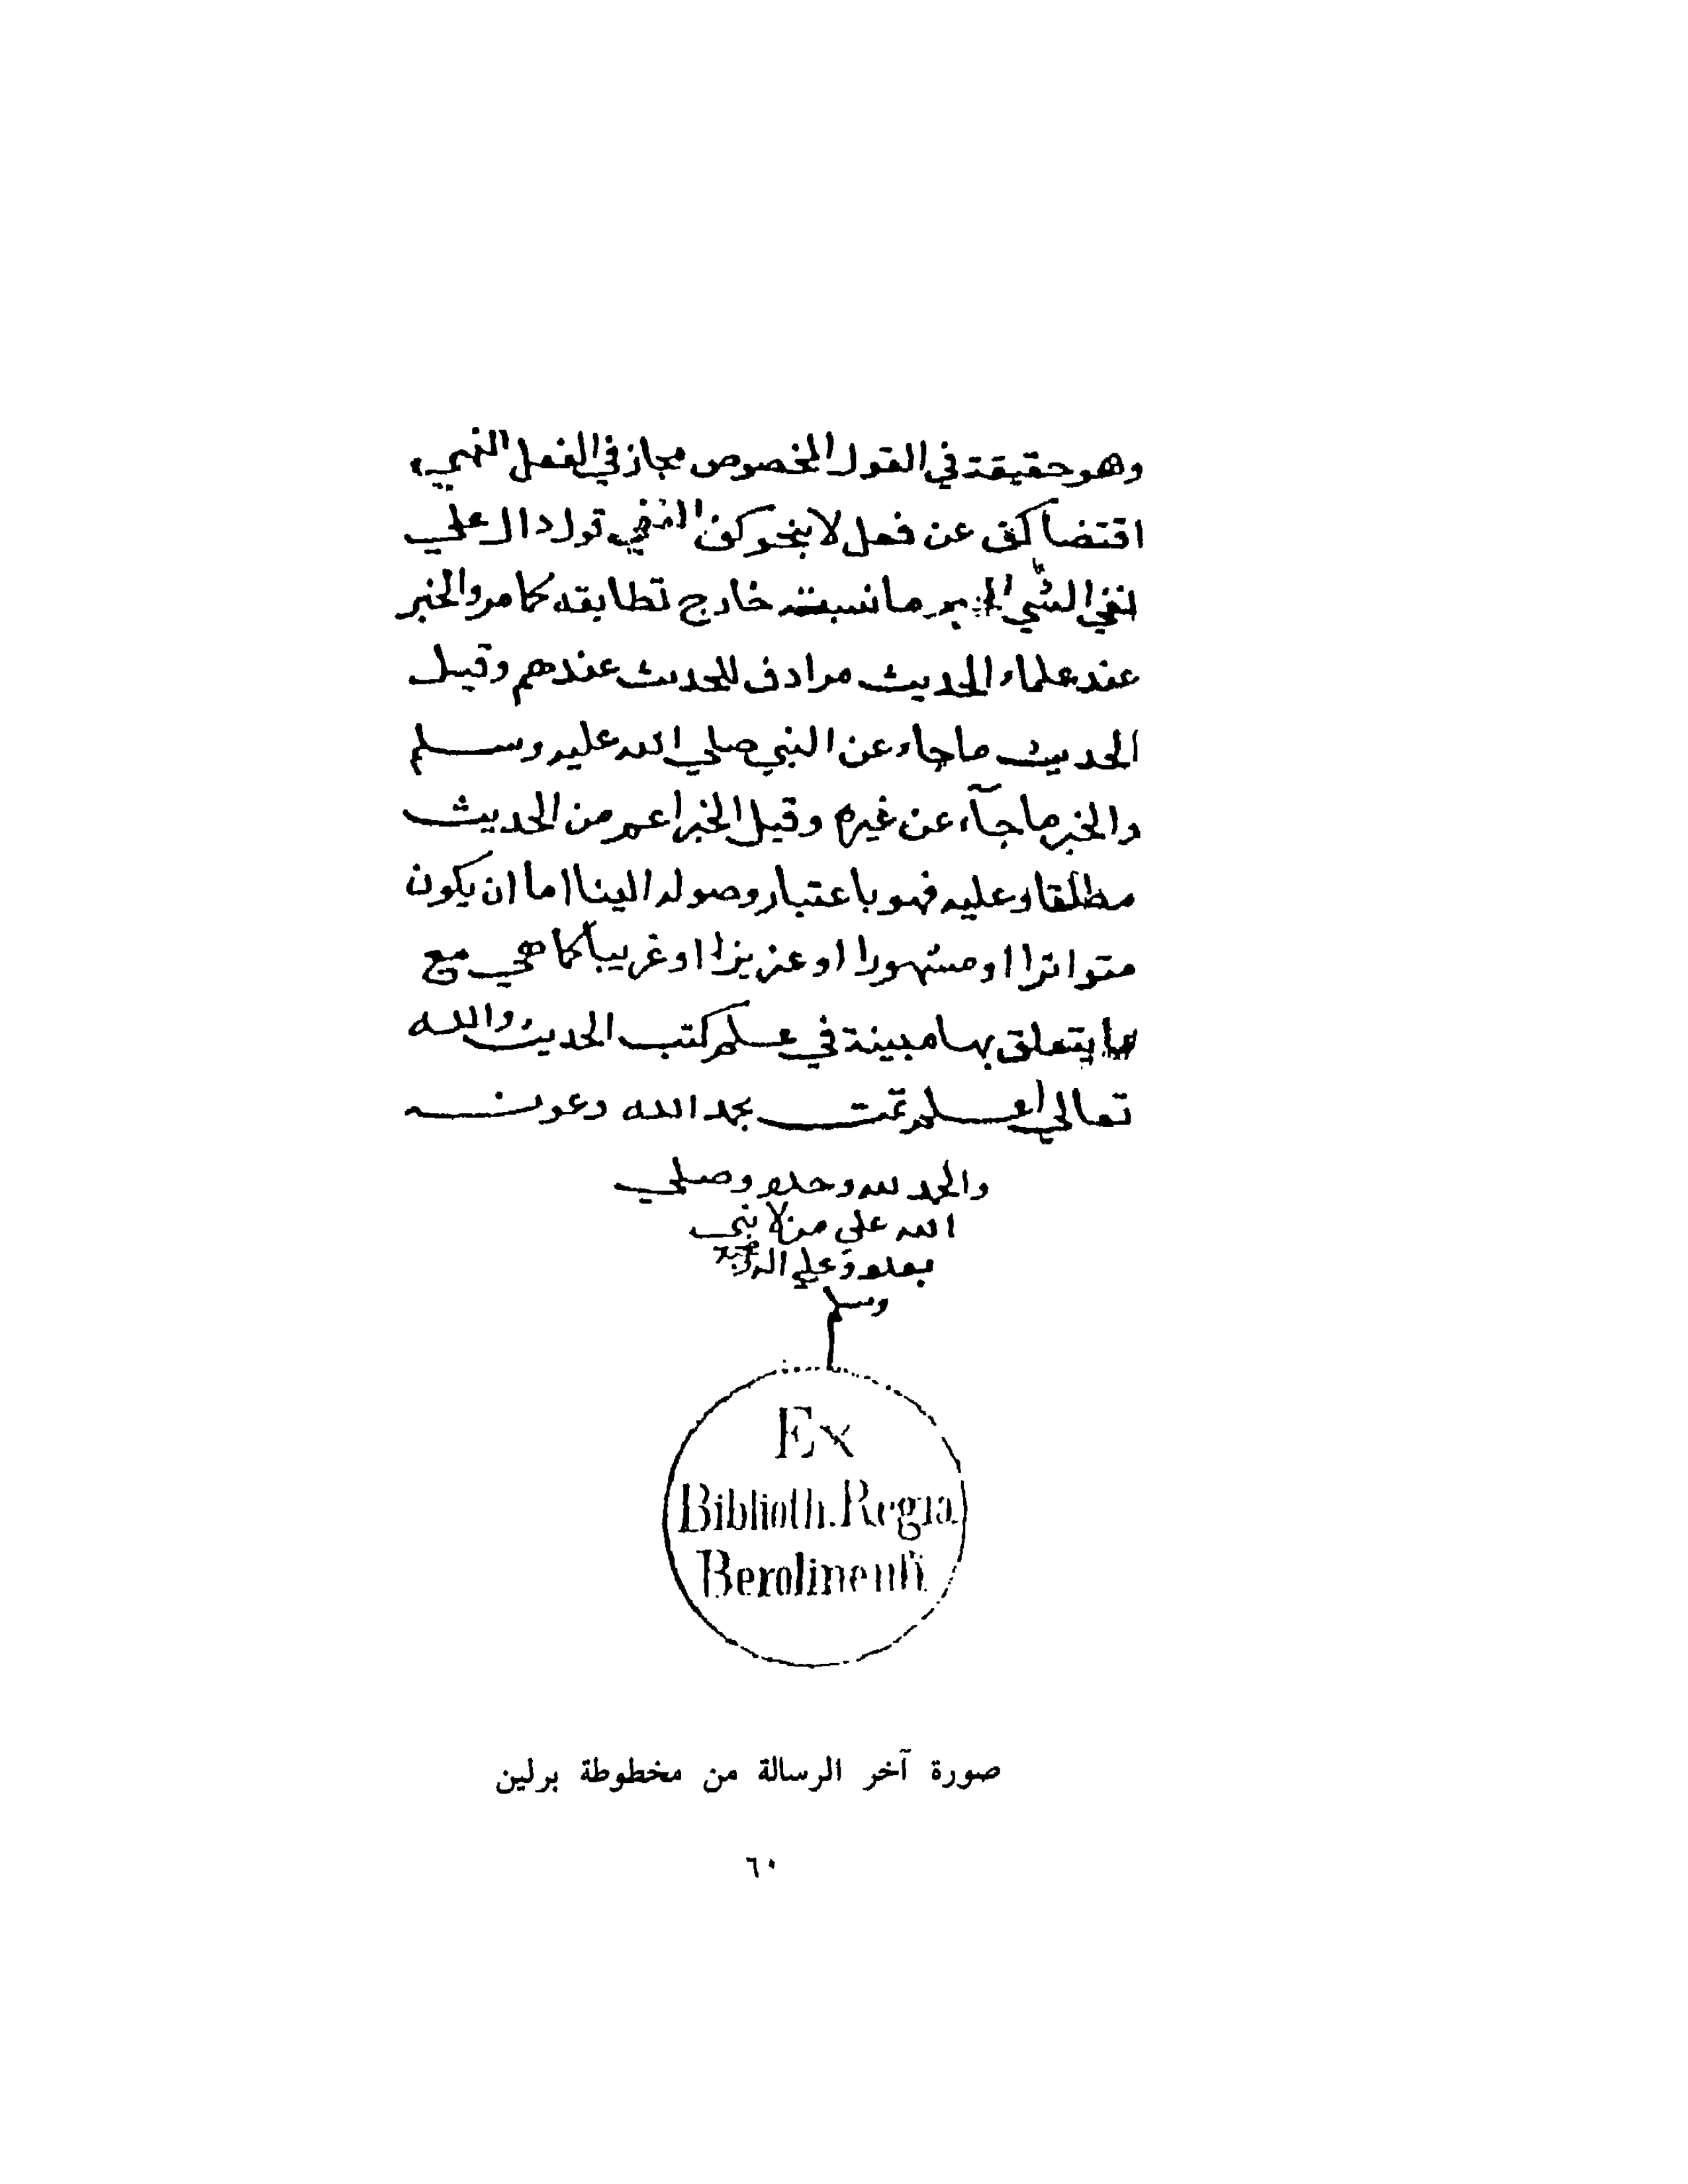 وهو حقيقة في القول المخصوص مجاز في الفعل النهي
اقتضا كف عن فعل لا بنحو كف النفي قول دال علي
نفي الشي الخبر ما نسبته خارج تطابقه كما مر والخبر
عند علماء الحديث مرادف للحديث عندهم وقيل
الحديث ما جاء عن النبي صلي الله عليه وسلم
والخبر ما جآء عن غيره وقيل الخبر اعم من الحديث
مطلقا وعليه فهو باعتبار وصوله الينا اما ان يكون
متواترا او مشهورا او عزيزا او غريبا كما هي مع
ما يتعلق بها مبينة في علم كتب الحديث والله
تعالي اعلم تمت بحمد الله وعونه
والحمد لله وحده وصلي
الله علي من لا نبي
بعده وعلي اله وصحبه
وسلم
Ex
Biblioth. Regia
Berolinenſi
صورة آخر الرسالة من مخطوطة برلين
٦٠